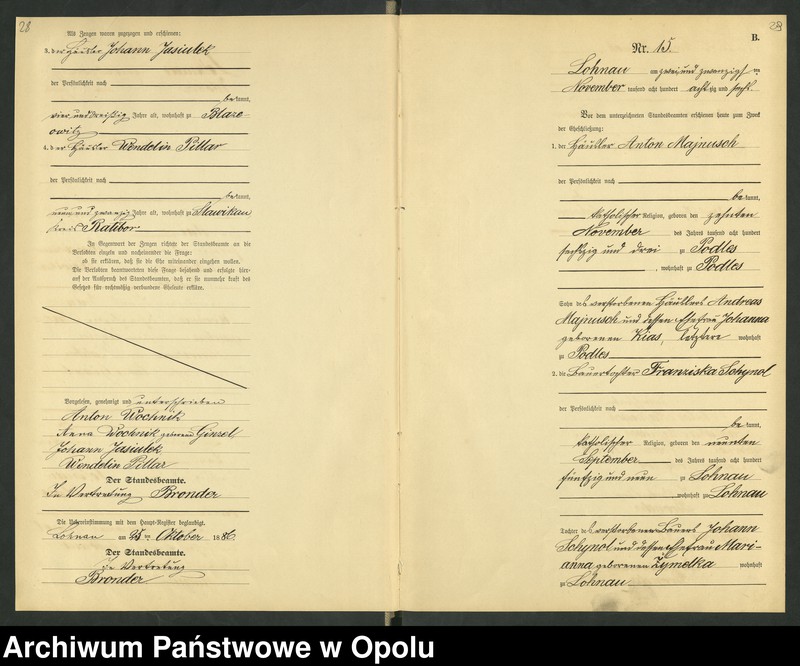 28
Als Zeugen waren zugezogen und erschienen:
3. der Häusler Johann Jasiulek
der Persönlichkeit nach
be kannt,
vier und dreißig Jahre alt, wohnhaft zu Blaze-
owitz
4. der Häusler Wendelin Pillar
der Persönlichkeit nach
be kannt,
neun und zwanzig Jahre alt, wohnhaft zu Slawikau
Kreis Ratibor.
In Gegenwart der Zeugen richtete der Standesbeamte an die
Verlobten einzeln und nacheinander die Frage:
ob sie erklären, daß sie die Ehe miteinander eingehen wollen.
Die Verlobten beantworteten diese Frage bejahend und erfolgte hier-
auf der Ausspruch des Standesbeamten, daß er sie nunmehr kraft des
Gesetzes für rechtmäßig verbundene Eheleute erkläre.
Vorgelesen, genehmigt und unterschrieben
Anton Wochnik
Anna Wochnik geborene Ginzel
Johann Jasiulek
Wendelin Pillar
Der Standesbeamte.
In Vertretung Bronder
Die Uebereinstimmung mit dem Haupt-Register beglaubigt.
Lohnau am 25 ten Oktober 1886
Der Standesbeamte.
In Vertretung
Bronder
29
B.
Nr. 15.
Lohnau am zwei und zwanzigsten
November tausend acht hundert achtzig und sechs
Vor dem unterzeichneten Standesbeamten erschienen heute zum Zweck
der Eheschließung:
1. der Häusler Anton Majnusch
der Persönlichkeit nach
be kannt,
katholischer Religion, geboren den zehnten
November des Jahres tausend acht hundert
sechszig und drei zu Podles
, wohnhaft zu Podles
Sohn des verstorbenen Häuslers Andreas
Majnusch und dessen Ehefrau Johanna
geborenen Kias, letztere wohnhaft
zu Podles
2. die Bauertochter Franziska Sohynol
der Persönlichkeit nach
be kannt,
katholischer Religion, geboren den neunten
September des Jahres tausend acht hundert
fünfzig und neun zu Lohnau
, wohnhaft zu Lohnau
Tochter des verstorbenen Bauers Johann
Sohynol und dessen Ehefrau Mari-
anna geborenen Zymelka wohnhaft
zu Lohnau
Archiwum Państwowe w Opolu